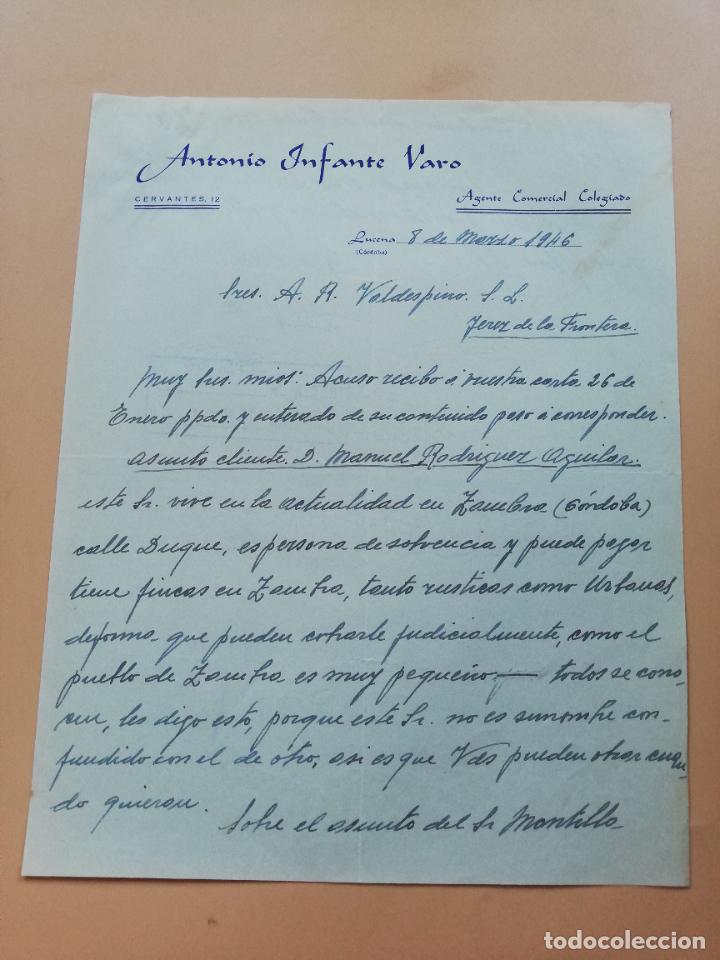 Antonio Infante Varo
CERVANTES, 12
Agente Comercial Colegiado
Lucena 8 de Marzo 1946
(Córdoba)
Sres. A. R. Valdespino. S. L.
Jerez de la Frontera.
Muy Sres. mios: Acuso recibo á vuestra carta 26 de
Enero ppdo. y enterado de su contenido paso á corresponder.
asunto cliente. D. Manuel Rodriguez Aguilar.
este Sr. vive en la actualidad en Zambra (Córdoba)
calle Duque, es persona de solvencia y puede pagar
tiene fincas en Zambra, tanto rusticas como Urbanas,
de forma que pueden cobrarle judicialmente, como el
pueblo de Zambra es muy pequeño — todos se cono-
cen, les digo esto, porque este Sr. no es su nombre con-
fundido con el de otro, asi es que Vds pueden obrar cuan-
do quieran.
Sobre el asunto del Sr Montilla
todocoleccion